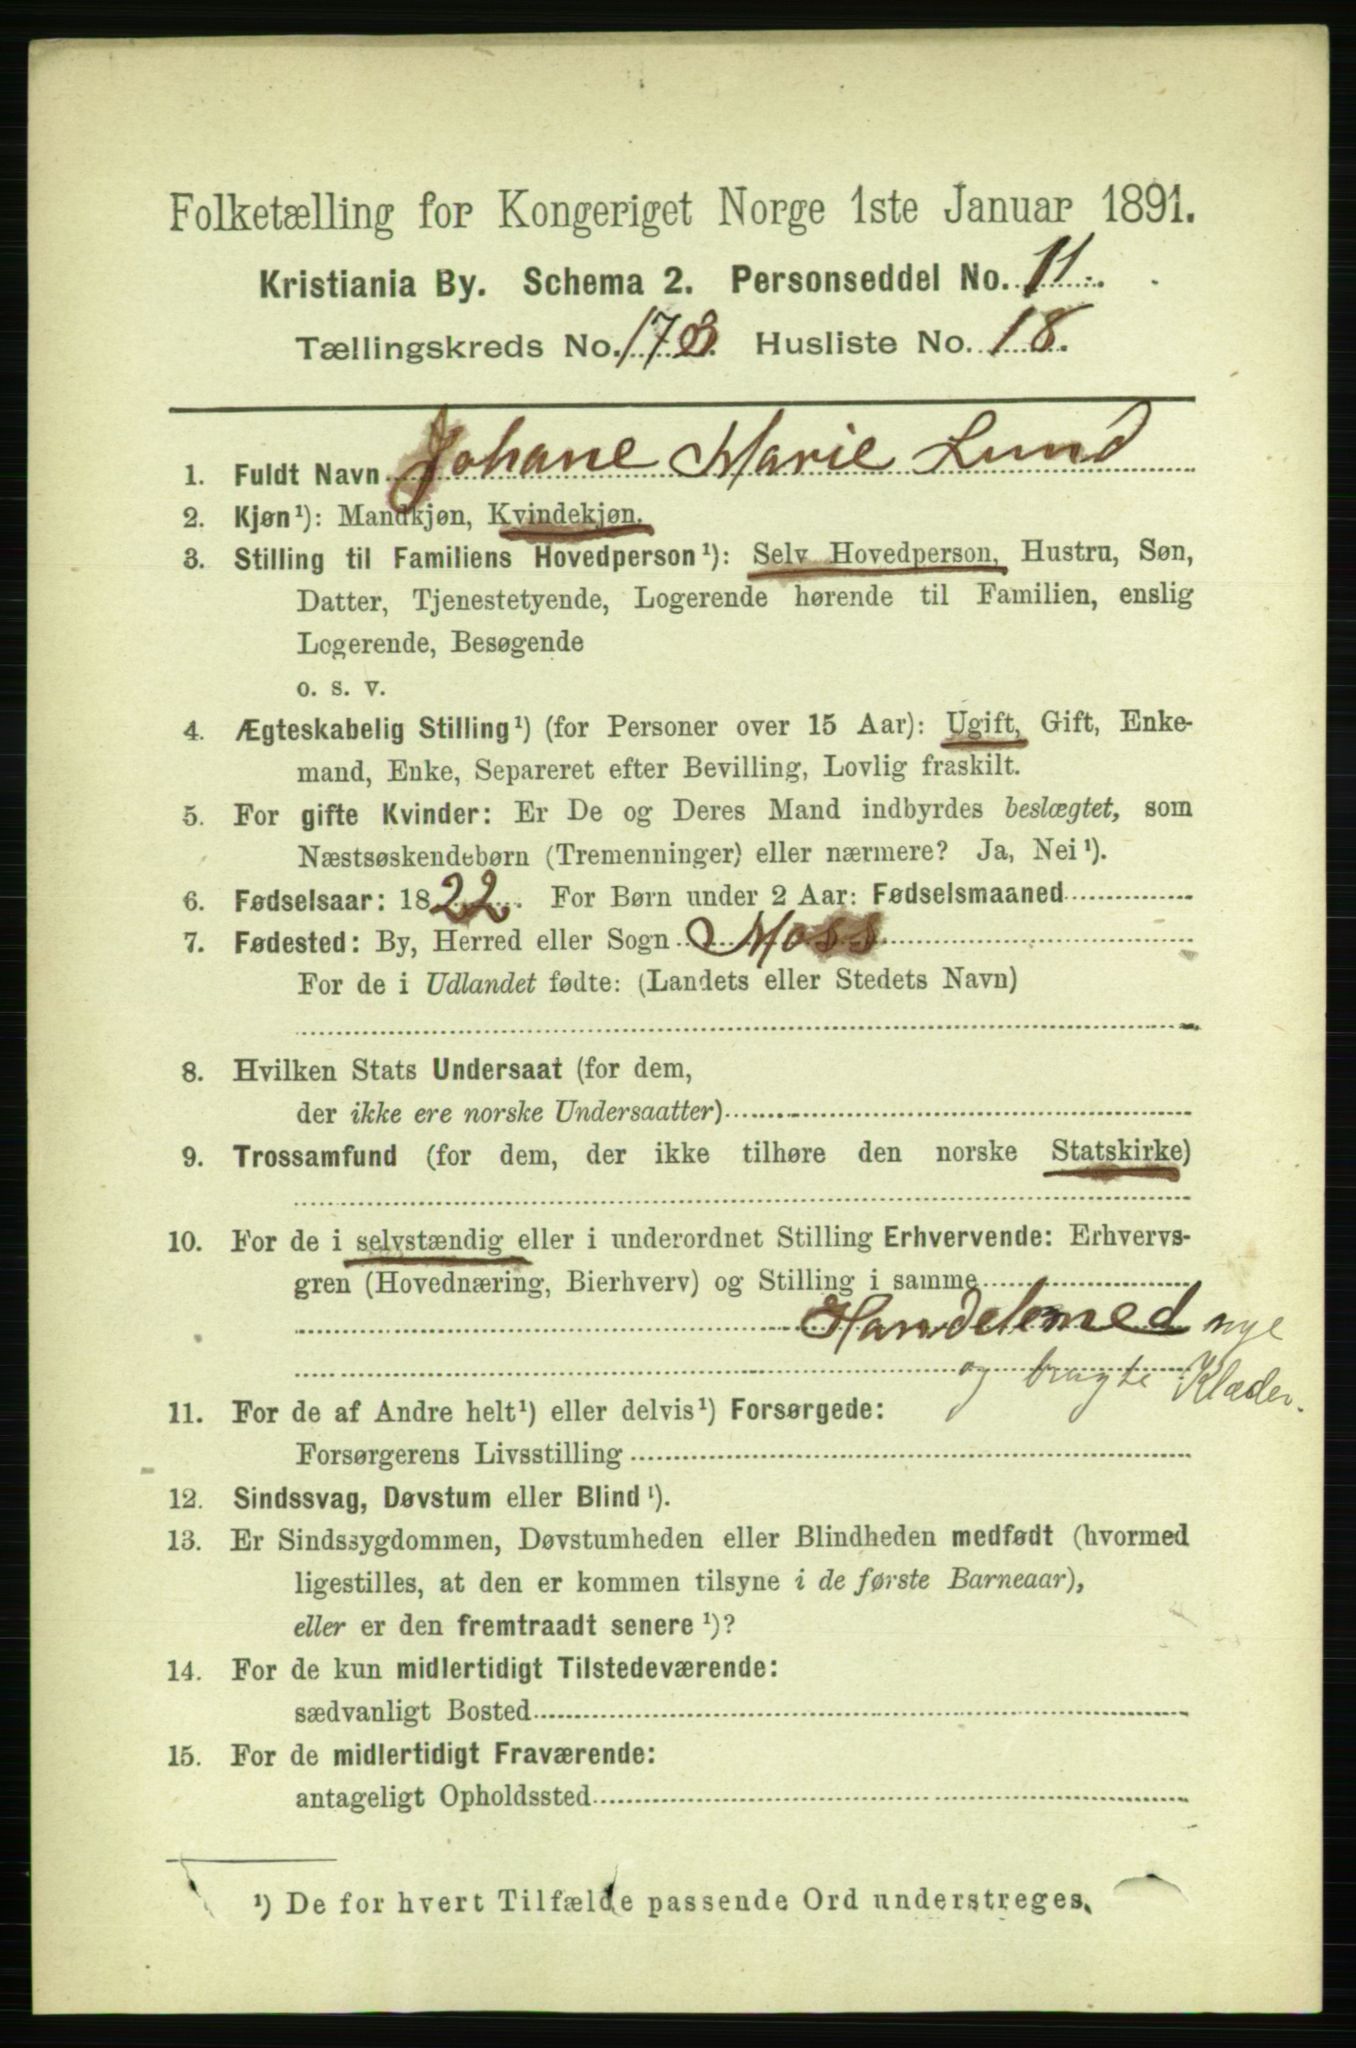 Folketælling for Kongeriget Norge 1ste Januar 1891.
Kristiania By. Schema 2. Personseddel No. 11.
Tællingskreds No. 173. Husliste No. 18.
1. Fuldt Navn Johane Marie Lund
2. Kjøn¹): Mandkjøn, Kvindekjøn.
3. Stilling til Familiens Hovedperson¹): Selv Hovedperson, Hustru, Søn,
Datter, Tjenestetyende, Logerende hørende til Familien, enslig
Logerende, Besøgende
o. s. v.
4. Ægteskabelig Stilling¹) (for Personer over 15 Aar): Ugift, Gift, Enke-
mand, Enke, Separeret efter Bevilling, Lovlig fraskilt.
5. For gifte Kvinder: Er De og Deres Mand indbyrdes beslægtet, som
Næstsøskendebørn (Tremenninger) eller nærmere? Ja, Nei¹).
6. Fødselsaar: 1822. For Børn under 2 Aar: Fødselsmaaned
7. Fødested: By, Herred eller Sogn Moss
For de i Udlandet fødte: (Landets eller Stedets Navn)
8. Hvilken Stats Undersaat (for dem,
der ikke ere norske Undersaatter)
9. Trossamfund (for dem, der ikke tilhøre den norske Statskirke)
10. For de i selvstændig eller i underordnet Stilling Erhvervende: Erhvervs-
gren (Hovednæring, Bierhverv) og Stilling i samme
Handel med nye
og brugte Klæder.
11. For de af Andre helt¹) eller delvis¹) Forsørgede:
Forsørgerens Livsstilling
12. Sindssvag, Døvstum eller Blind¹).
13. Er Sindssygdommen, Døvstumheden eller Blindheden medfødt (hvormed
ligestilles, at den er kommen tilsyne i de første Barneaar),
eller er den fremtraadt senere¹)?
14. For de kun midlertidigt Tilstedeværende:
sædvanligt Bosted
15. For de midlertidigt Fraværende:
antageligt Opholdssted
¹) De for hvert Tilfælde passende Ord understreges.